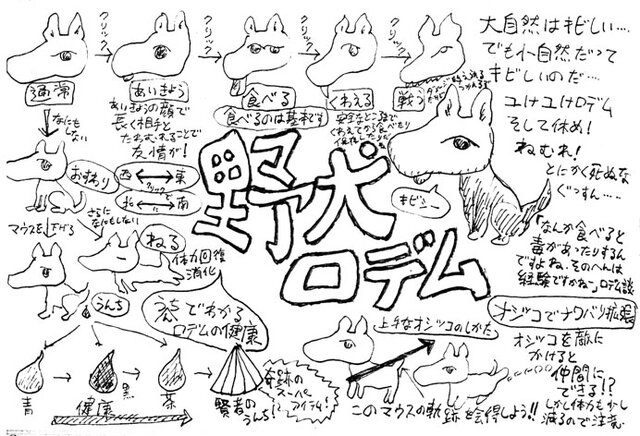 クリック
クリック
クリック
クリック
クリック
通常
あいきょう
食べる
くわえる
戦う
あいきょうの顔で
長く相手と
たわむれることで
友情が!
食べるのは基本です
安全なところまで
くわえてから食べたり
大自然はキビしい…
でも小自然だって
キビしいのだ…
ユけユけロデム
そして休め!
ねむれ!
とにかく死ぬな
ぐっすん……
なにも
しない
おすわり
西 東
クリックで
北 南
マウスを下げる
さらに
なにもしない
ねる
体力回復
消化
うんち
野犬
ロデム
キビシ〜
「なんか食べると
毒があったりするん
ですよね、そのへんは
経験ですかね」ロデム談
うんちでわかる
ロデムの健康
青
健康
黒
茶
賢者の
うんち!?
奇跡の
スーパー
アイテム!
上手なオシッコのしかた
このマウスの軌跡を会得しよう!!
オシッコでナワバリ拡張
オシッコを敵に
かけると
仲間に
できる!?
しかし体力も少し
減るので注意